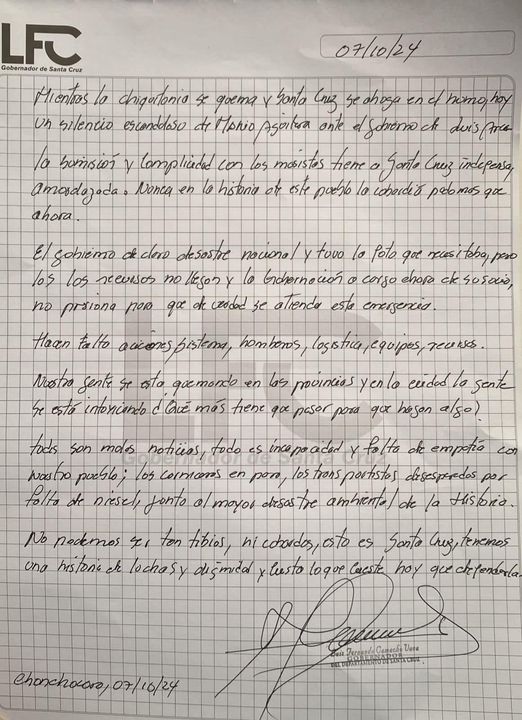 LFC
Gobernador de Santa Cruz
07/10/24
Mientras la chiquitania se quema y Santa Cruz se ahoga en el humo, hoy
un silencio escandaloso de Mario Aguilera ante el gobierno de Luis Arce
la sumisión y complicidad con los masistas tiene a Santa Cruz indefensa,
amordazada. Nunca en la historia de este pueblo la cobardía pudo más que
ahora.
El gobierno declaro desastre nacional y tuvo la foto que necesitaba, pero
los los recursos no llegan y la Gobernación a cargo ahora de su socio,
no presiona para que de verdad se atienda esta emergencia.
Hacen falta aviones sistema, bomberos, logística, equipos, recursos.
Nuestra gente se esta quemando en las provincias y en la ciudad la gente
se está intoxicando ¿Qué más tiene que pasar para que hagan algo?
todas son malas noticias, todo es incapacidad y falta de empatía con
nuestro pueblo; los carniceros en paro, los transportistas desesperados por
falta de diesel, junto al mayor desastre ambiental de la Historia.
No podemos ser tan tibios, ni cobardes, esto es Santa Cruz, tenemos
una historia de luchas y dignidad y cueste lo que cueste hoy que defenderla.
Luis Fernando Camacho Vaca
GOBERNADOR
DEL DEPARTAMENTO DE SANTA CRUZ
Chonchocoro, 07/10/24